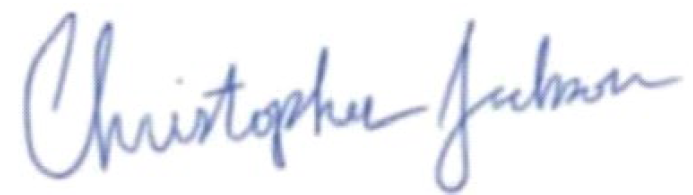 Christopher Jackson